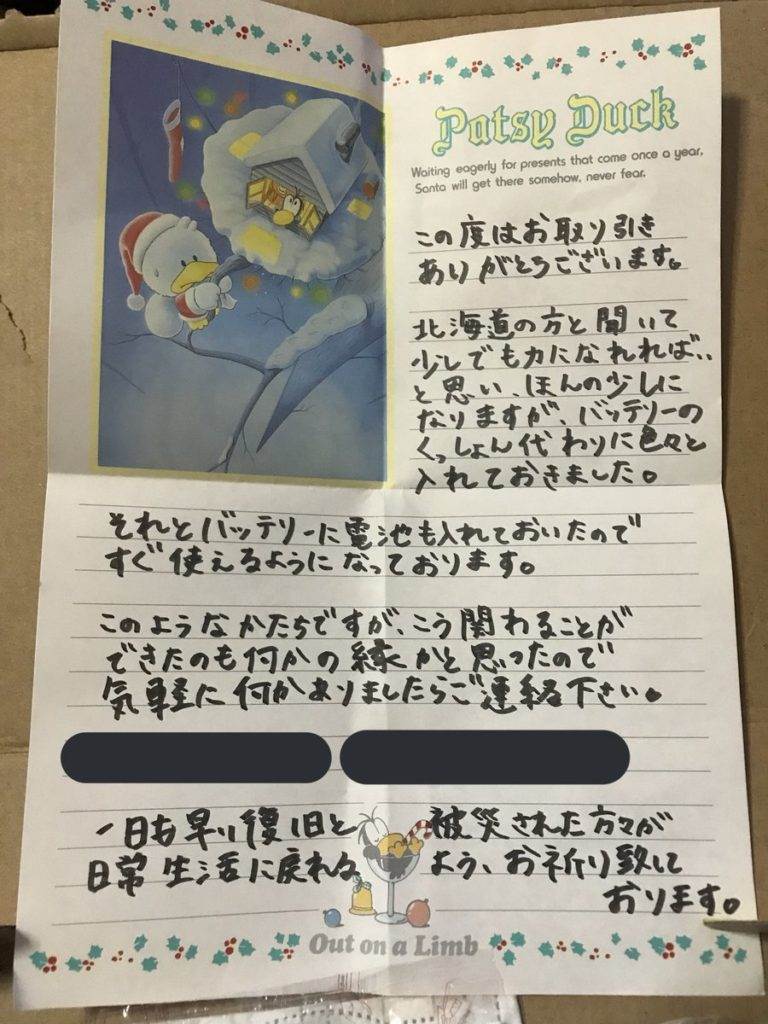 Patsy Duck
Waiting eagerly for presents that come once a year,
Santa will get there somehow, never fear.
この度はお取り引き
ありがとうございます。
北海道の方と聞いて
少しでも力になれれば、、
と思い、ほんの少しに
なりますが、バッテリーの
くっしょん代わりに色々と
入れておきました。
それとバッテリーに電池も入れておいたので
すぐ使えるようになっております。
このようなかたちですが、こう関わることが
できたのも何かの縁かと思ったので
気軽に何かありましたらご連絡下さい。
一日も早い復旧と被災された方々が
日常生活に戻れるよう、お祈り致して
おります。
Out on a Limb